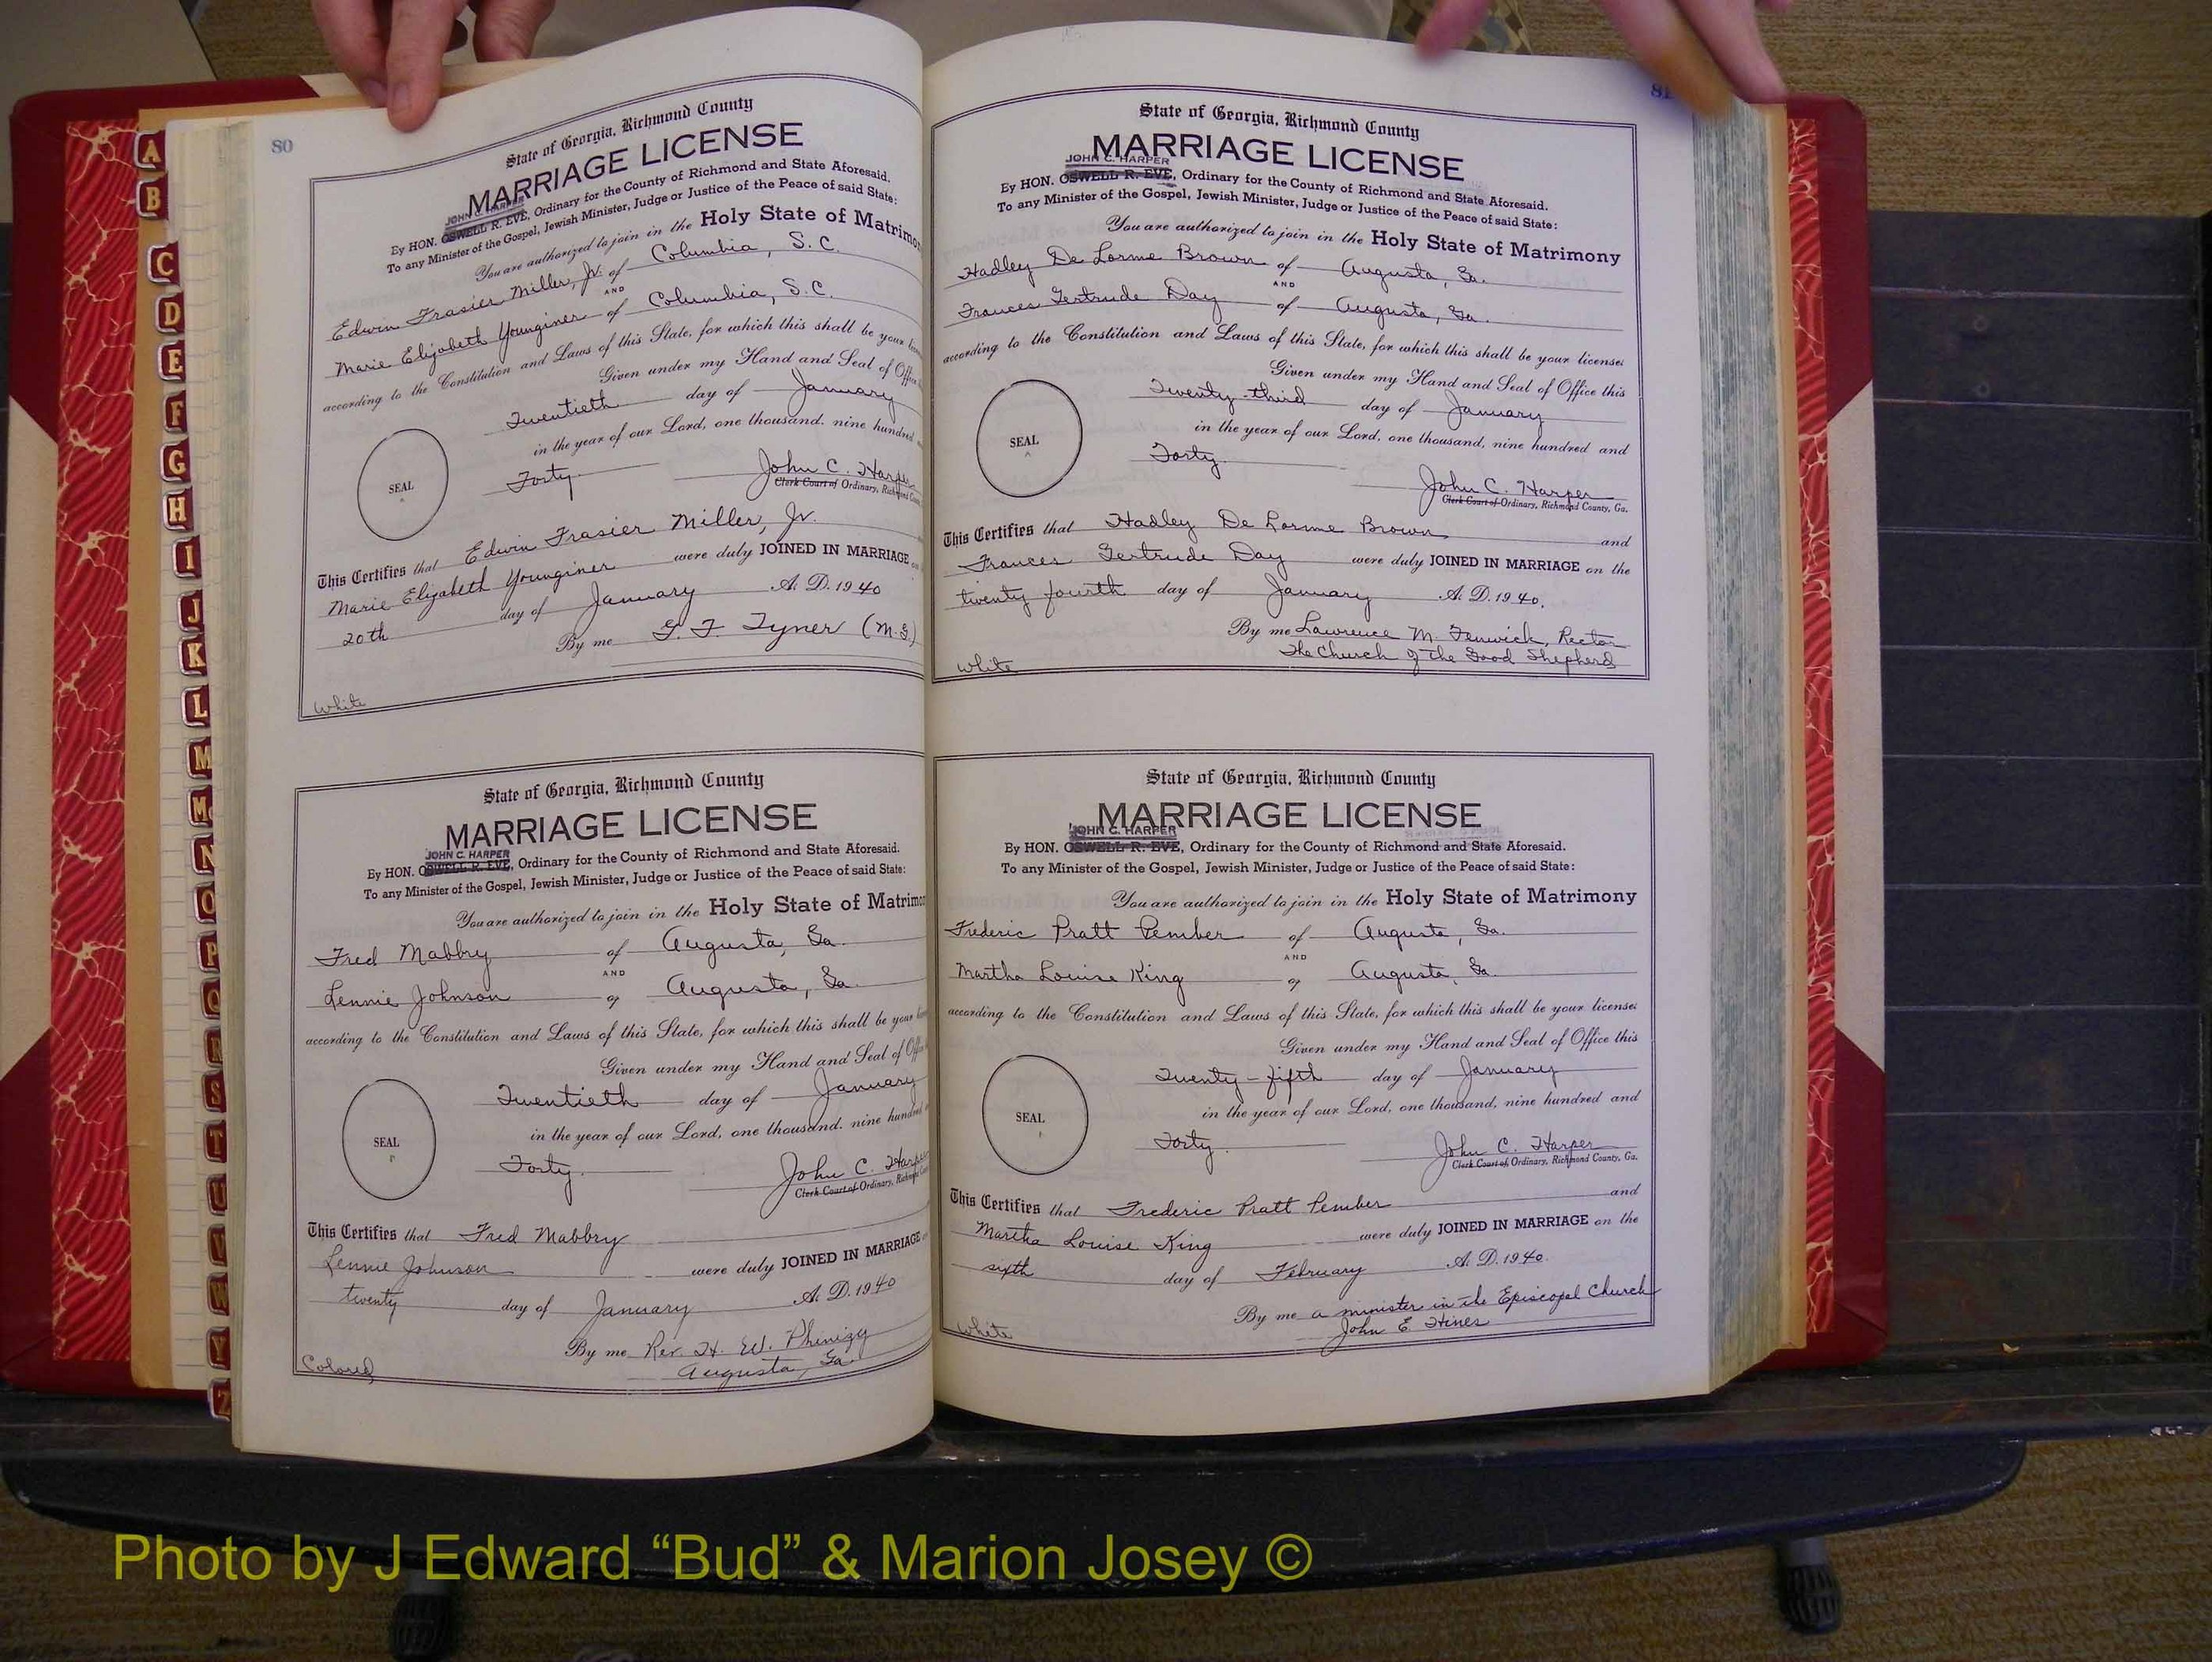 80
State of Georgia, Richmond County
MARRIAGE LICENSE
JOHN C. HARPER
By HON. OSWELL R. EVE, Ordinary for the County of Richmond and State Aforesaid.
To any Minister of the Gospel, Jewish Minister, Judge or Justice of the Peace of said State:
You are authorized to join in the Holy State of Matrimo
Edwin Frasier Miller, Jr. of Columbia, S. C.
AND
Marie Elizabeth Younginer of Columbia, S. C.
according to the Constitution and Laws of this State, for which this shall be your
Given under my Hand and Seal of Office
Twentieth day of January
in the year of our Lord, one thousand, nine hundred
Forty
John C. Harper
Clerk Court of Ordinary, Richmond
SEAL
This Certifies that Edwin Frasier Miller, Jr.
Marie Elizabeth Younginer were duly JOINED IN MARRIAGE
20th day of January A. D. 1940
By me G. F. Tyner (M.G.)
White
State of Georgia, Richmond County
MARRIAGE LICENSE
JOHN C. HARPER
By HON. OSWELL R. EVE, Ordinary for the County of Richmond and State Aforesaid.
To any Minister of the Gospel, Jewish Minister, Judge or Justice of the Peace of said State:
You are authorized to join in the Holy State of Matrimo
Fred Mabbry of Augusta, Ga.
AND
Lennie Johnson of Augusta, Ga.
according to the Constitution and Laws of this State, for which this shall be your
Given under my Hand and Seal of Office
Twentieth day of January
in the year of our Lord, one thousand, nine hundred
Forty.
John C. Harper
Clerk Court of Ordinary, Richmond
SEAL
This Certifies that Fred Mabbry
Lennie Johnson were duly JOINED IN MARRIAGE
twenty day of January A. D. 1940
By me Rev. H. W. Phinizy
Augusta, Ga.
Colored
81
State of Georgia, Richmond County
MARRIAGE LICENSE
JOHN C. HARPER
By HON. OSWELL R. EVE, Ordinary for the County of Richmond and State Aforesaid.
To any Minister of the Gospel, Jewish Minister, Judge or Justice of the Peace of said State:
You are authorized to join in the Holy State of Matrimony
Hadley De Lorme Brown of Augusta, Ga.
AND
Frances Gertrude Day of Augusta, Ga.
according to the Constitution and Laws of this State, for which this shall be your license:
Given under my Hand and Seal of Office this
Twenty-third day of January
in the year of our Lord, one thousand, nine hundred and
Forty.
John C. Harper
Clerk Court of Ordinary, Richmond County, Ga.
SEAL
This Certifies that Hadley De Lorme Brown and
Frances Gertrude Day were duly JOINED IN MARRIAGE on the
twenty fourth day of January A. D. 1940.
By me Lawrence M. Fenwick, Rector
The Church of the Good Shepherd
White
State of Georgia, Richmond County
MARRIAGE LICENSE
JOHN C. HARPER
By HON. OSWELL R. EVE, Ordinary for the County of Richmond and State Aforesaid.
To any Minister of the Gospel, Jewish Minister, Judge or Justice of the Peace of said State:
You are authorized to join in the Holy State of Matrimony
Frederic Pratt Pember of Augusta, Ga.
AND
Martha Louise King of Augusta, Ga.
according to the Constitution and Laws of this State, for which this shall be your license:
Given under my Hand and Seal of Office this
Twenty-fifth day of January
in the year of our Lord, one thousand, nine hundred and
Forty.
John C. Harper
Clerk Court of Ordinary, Richmond County, Ga.
SEAL
This Certifies that Frederic Pratt Pember and
Martha Louise King were duly JOINED IN MARRIAGE on the
sixth day of February A. D. 1940.
By me a minister in the Episcopal Church
John E. Hines
White
A
B
C
D
E
F
G
H
I
J
K
L
M
Mc
N
O
P
Q
R
S
T
U
V
W
Y
Z
Photo by J Edward “Bud” & Marion Josey ©